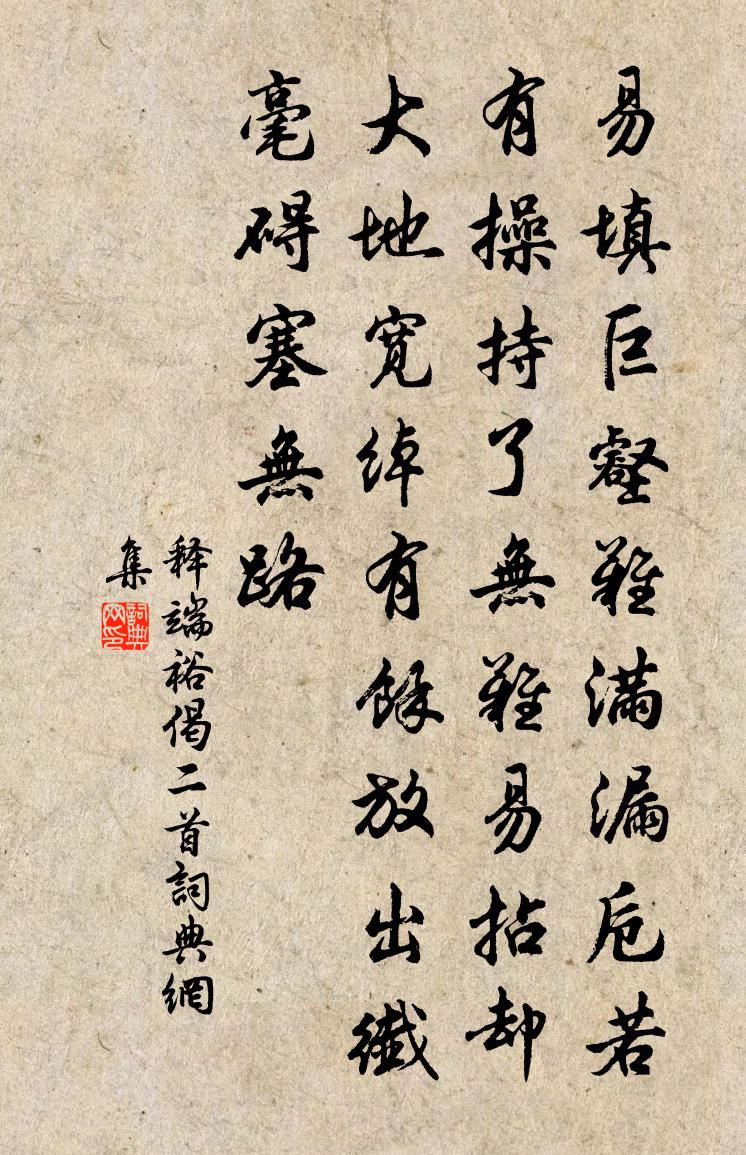 易填巨壑難滿漏卮若
有操持了無難易拈却
大地寬綽有餘放出纖
毫碍塞無路
释端裕偈二首詞典網
集
詞典网印